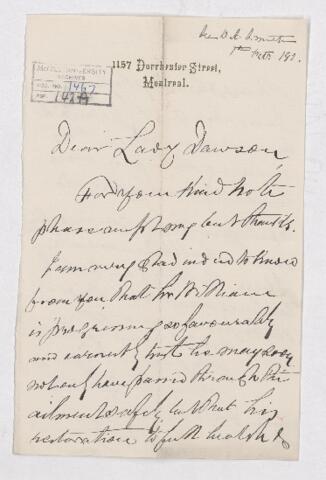 1157 Dorchester Street,
Montreal.
McGILL UNIVERSITY
ARCHIVES
ACC. NO. 1462
REF.
Dear Lady Dawson
For your kind note
please accept my best thanks.
I am very glad indeed to know
from you that Sir William
is progressing so favourably
and earnestly trust he may soon
not only have passed through the
ailment safely but that his
restoration to full health &